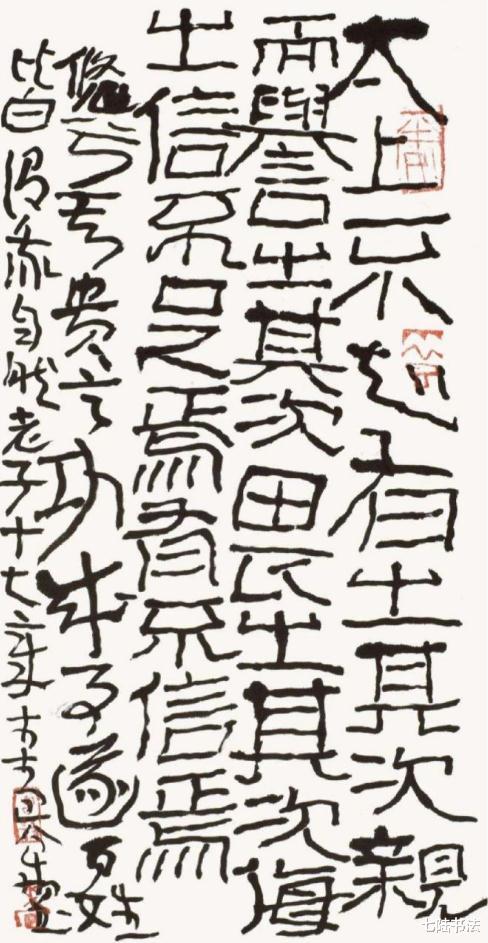 太上不知有之其次親
而譽之其次畏之其次侮
之信不足焉有不信焉
悠兮其貴言功成事遂百姓
皆謂我自然老子十七章
七陆书法